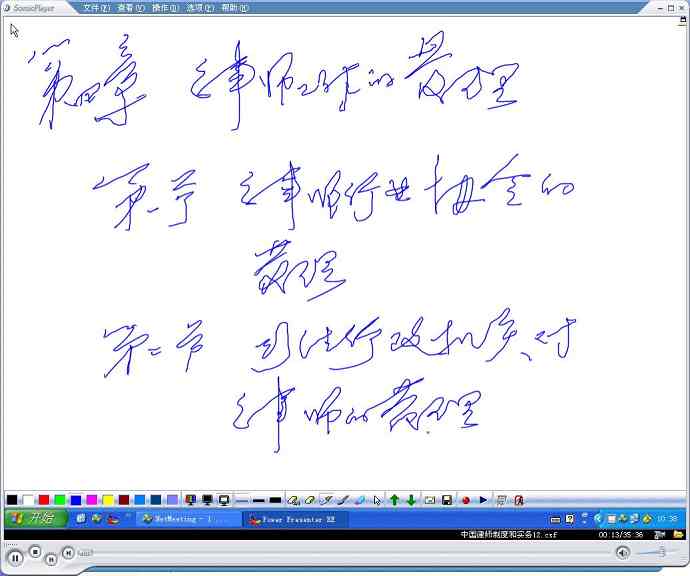 SonicPlayer 文件(F) 查看(V) 操作(O) 选项(P) 帮助(H)
第四章 律师的管理
第一节 律师行业协会的
管理
第二节 司法行政机关对
律师的管理
开始 NetMeeting - 1 Power Presenter RE 10:38
中国律师制度和实务12.csf 00:13/35:36